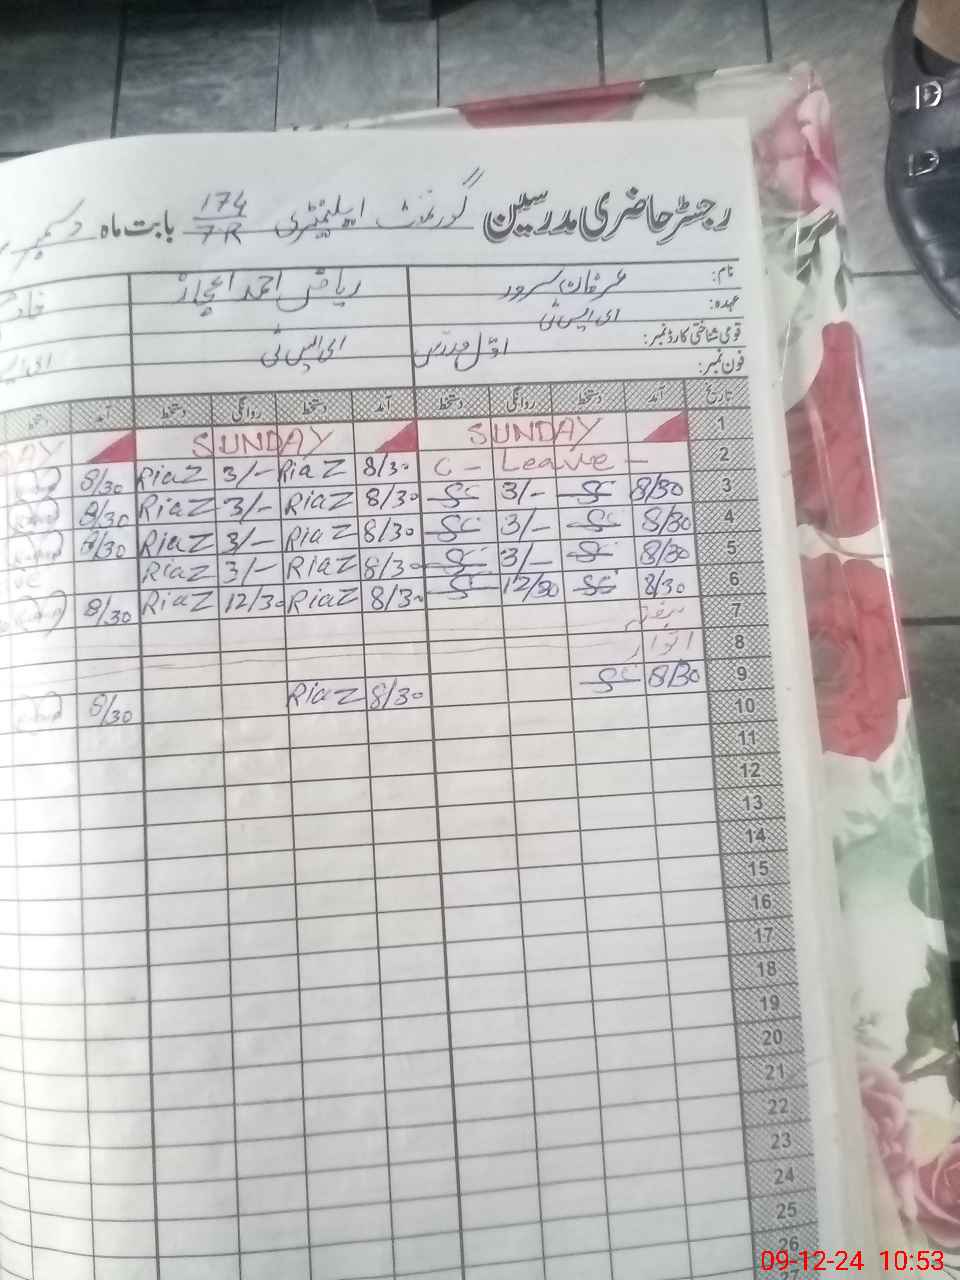 رجسٹر حاضری مدرسین گورنمنٹ ایلیمنٹری 174/7R بابت ماہ دسمبر
نام: عرفان سرور ریاض احمد اعجاز
عہدہ: ای ایس ٹی ای ایس ٹی
قومی شناختی کارڈ نمبر: اوّل مدرس
فون نمبر:
تاریخ آمد دستخط روانگی دستخط آمد دستخط روانگی دستخط آمد دستخط
1 SUNDAY SUNDAY
2 C - Leave - 8/30 RiaZ 3/- RiaZ 8/30
3 8/30 3/- 8/30 RiaZ 3/- RiaZ 8/30
4 8/30 3/- 8/30 RiaZ 3/- RiaZ 8/30
5 8/30 3/- 8/30 RiaZ 3/- RiaZ
6 8/30 12/30 8/30 RiaZ 12/30 RiaZ 8/30
7 ہفتہ
8 اتوار
9 8/30 8/30 RiaZ 8/30
10
11
12
13
14
15
16
17
18
19
20
21
22
23
24
25
26
27
09-12-24 10:53